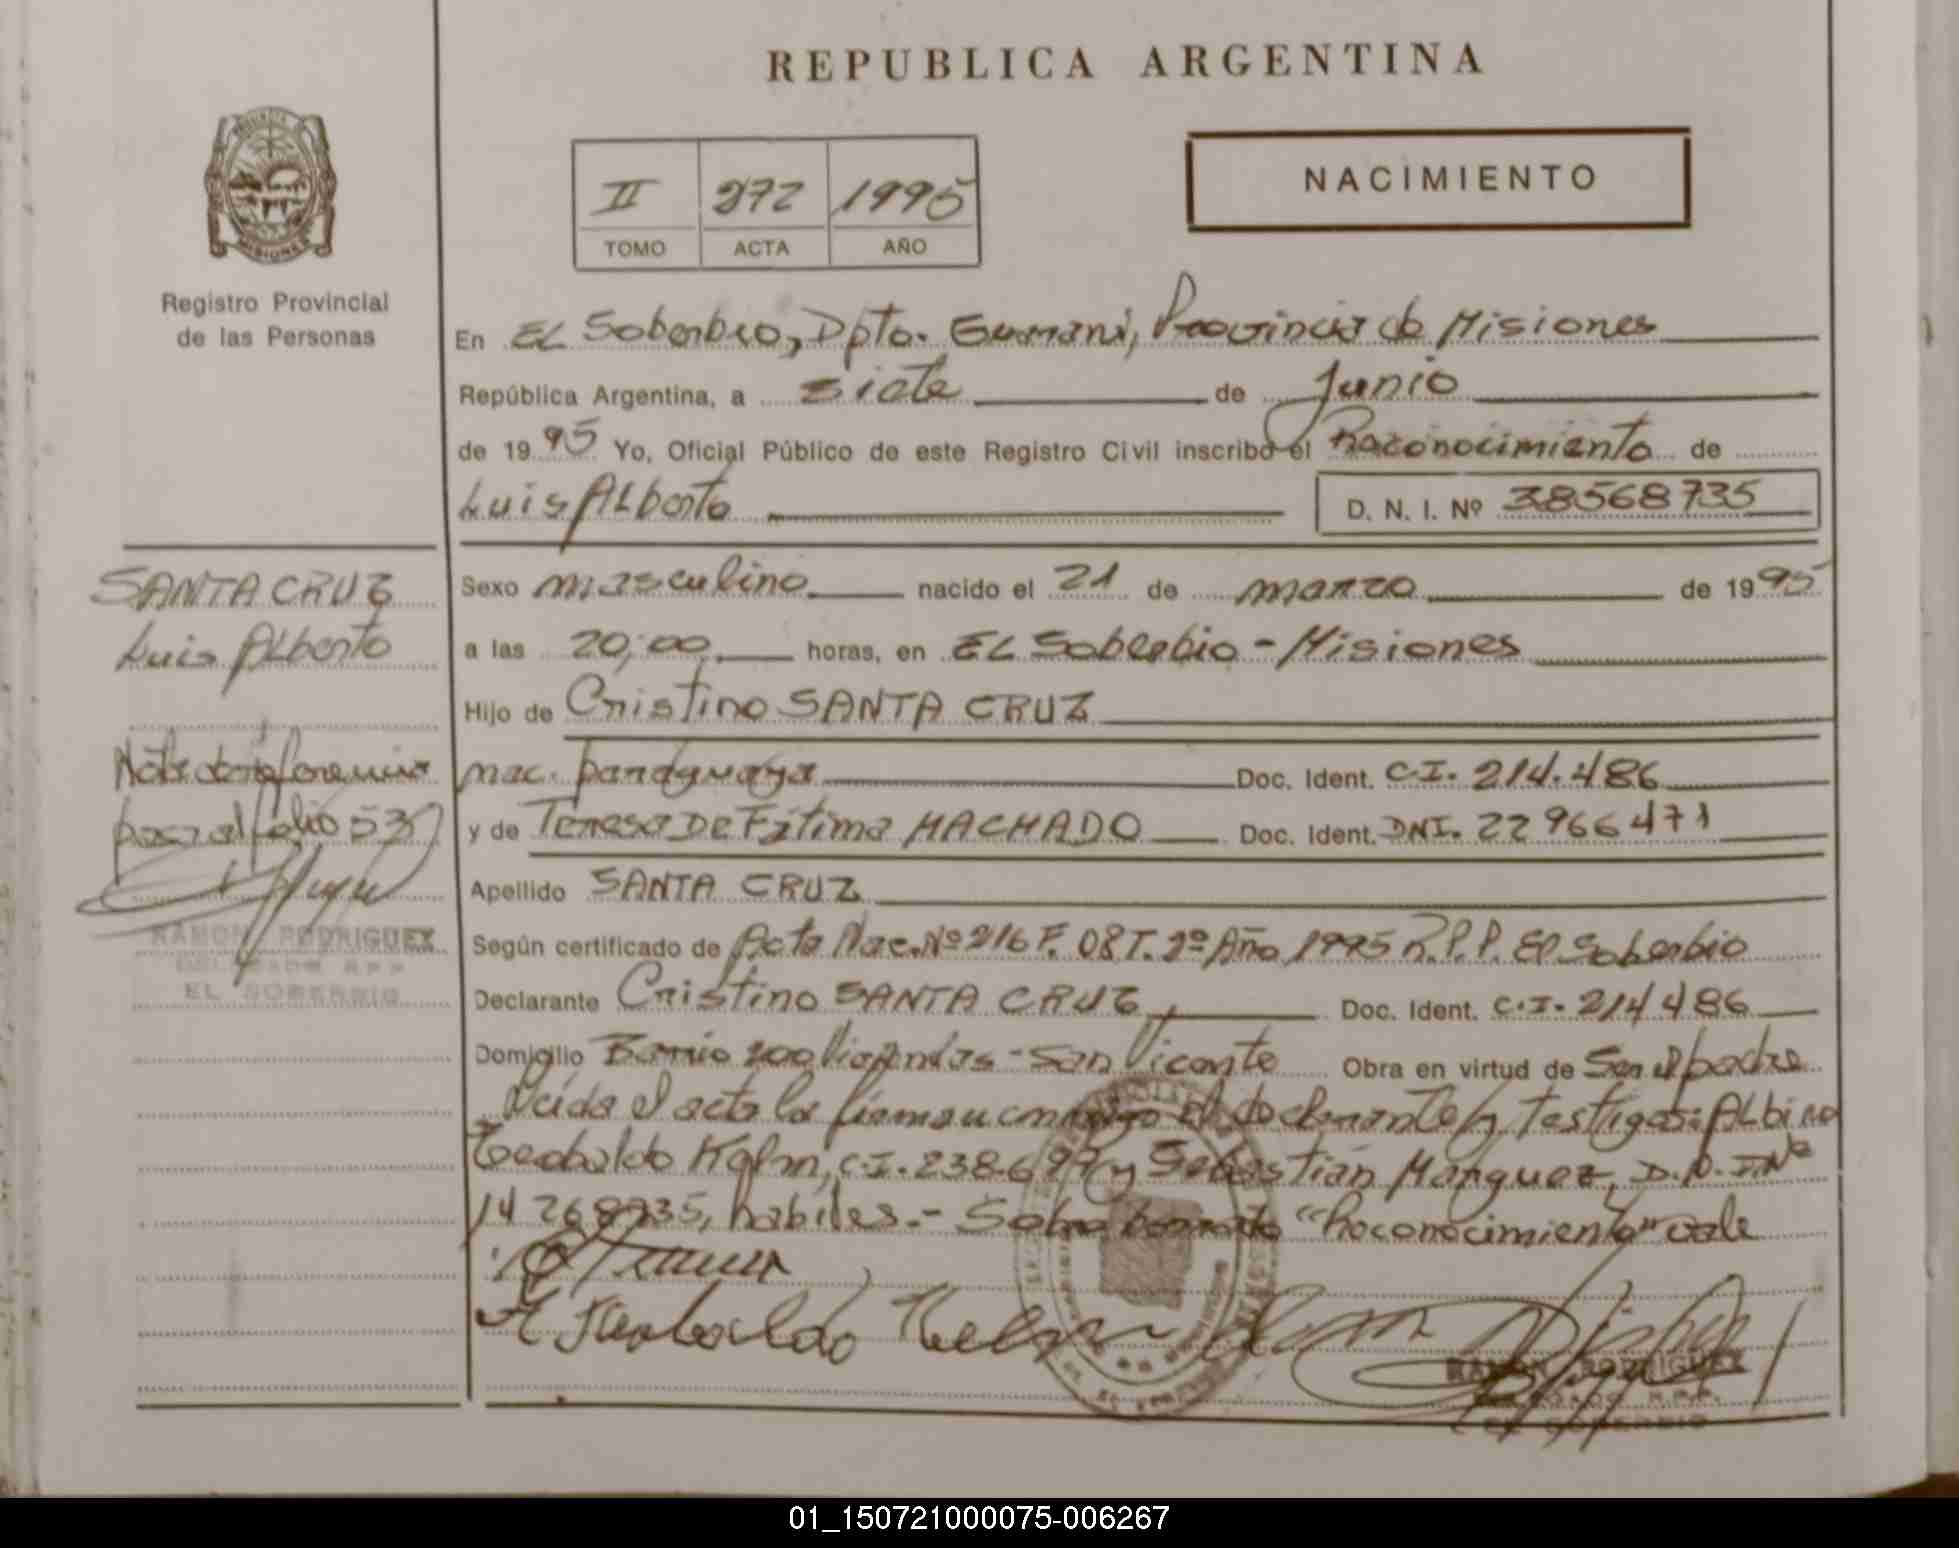 REPUBLICA ARGENTINA
NACIMIENTO
II 272 1995
TOMO ACTA AÑO
PROVINCIA DE
MISIONES
Registro Provincial
de las Personas
En EL Soberbio, Dpto. Guarani, Provincia de Misiones
República Argentina, a siete de Junio
de 1995 Yo, Oficial Público de este Registro Civil inscribo el Reconocimiento de
Luis Alberto D. N. I. Nº 38568735
SANTA CRUZ
Luis Alberto
Nota de referencia
pasa al folio 53
RAMON RODRIGUEZ
DELEGADO R.P.P.
EL SOBERBIO
Sexo masculino nacido el 21 de marzo de 1995
a las 20,00 horas, en EL Soberbio - Misiones
Hijo de Cristino SANTA CRUZ
nac. paraguaya Doc. Ident. C.I. 214.486
y de Teresa De Fátima MACHADO Doc. Ident. DNI. 22966471
Apellido SANTA CRUZ
Según certificado de Acta Nac. Nº 216 F. 08 T. 2º Año 1995 R.P.P. El Soberbio
Declarante Cristino SANTA CRUZ Doc. Ident. C.I. 214486
Domicilio Barrio 200 Viviendas - San Vicente Obra en virtud de Ser el padre
Leída el acta la firman conmigo el declarante y testigos: Albino
Teobaldo C.I. 238.697 y Sebastián Marquez, D.N.I Nº
14268735, habiles.- Sobre borrado "Reconocimiento" vale
RAMON RODRIGUEZ
DELEGADO R.P.P.
EL SOBERBIO
01_150721000075-006267